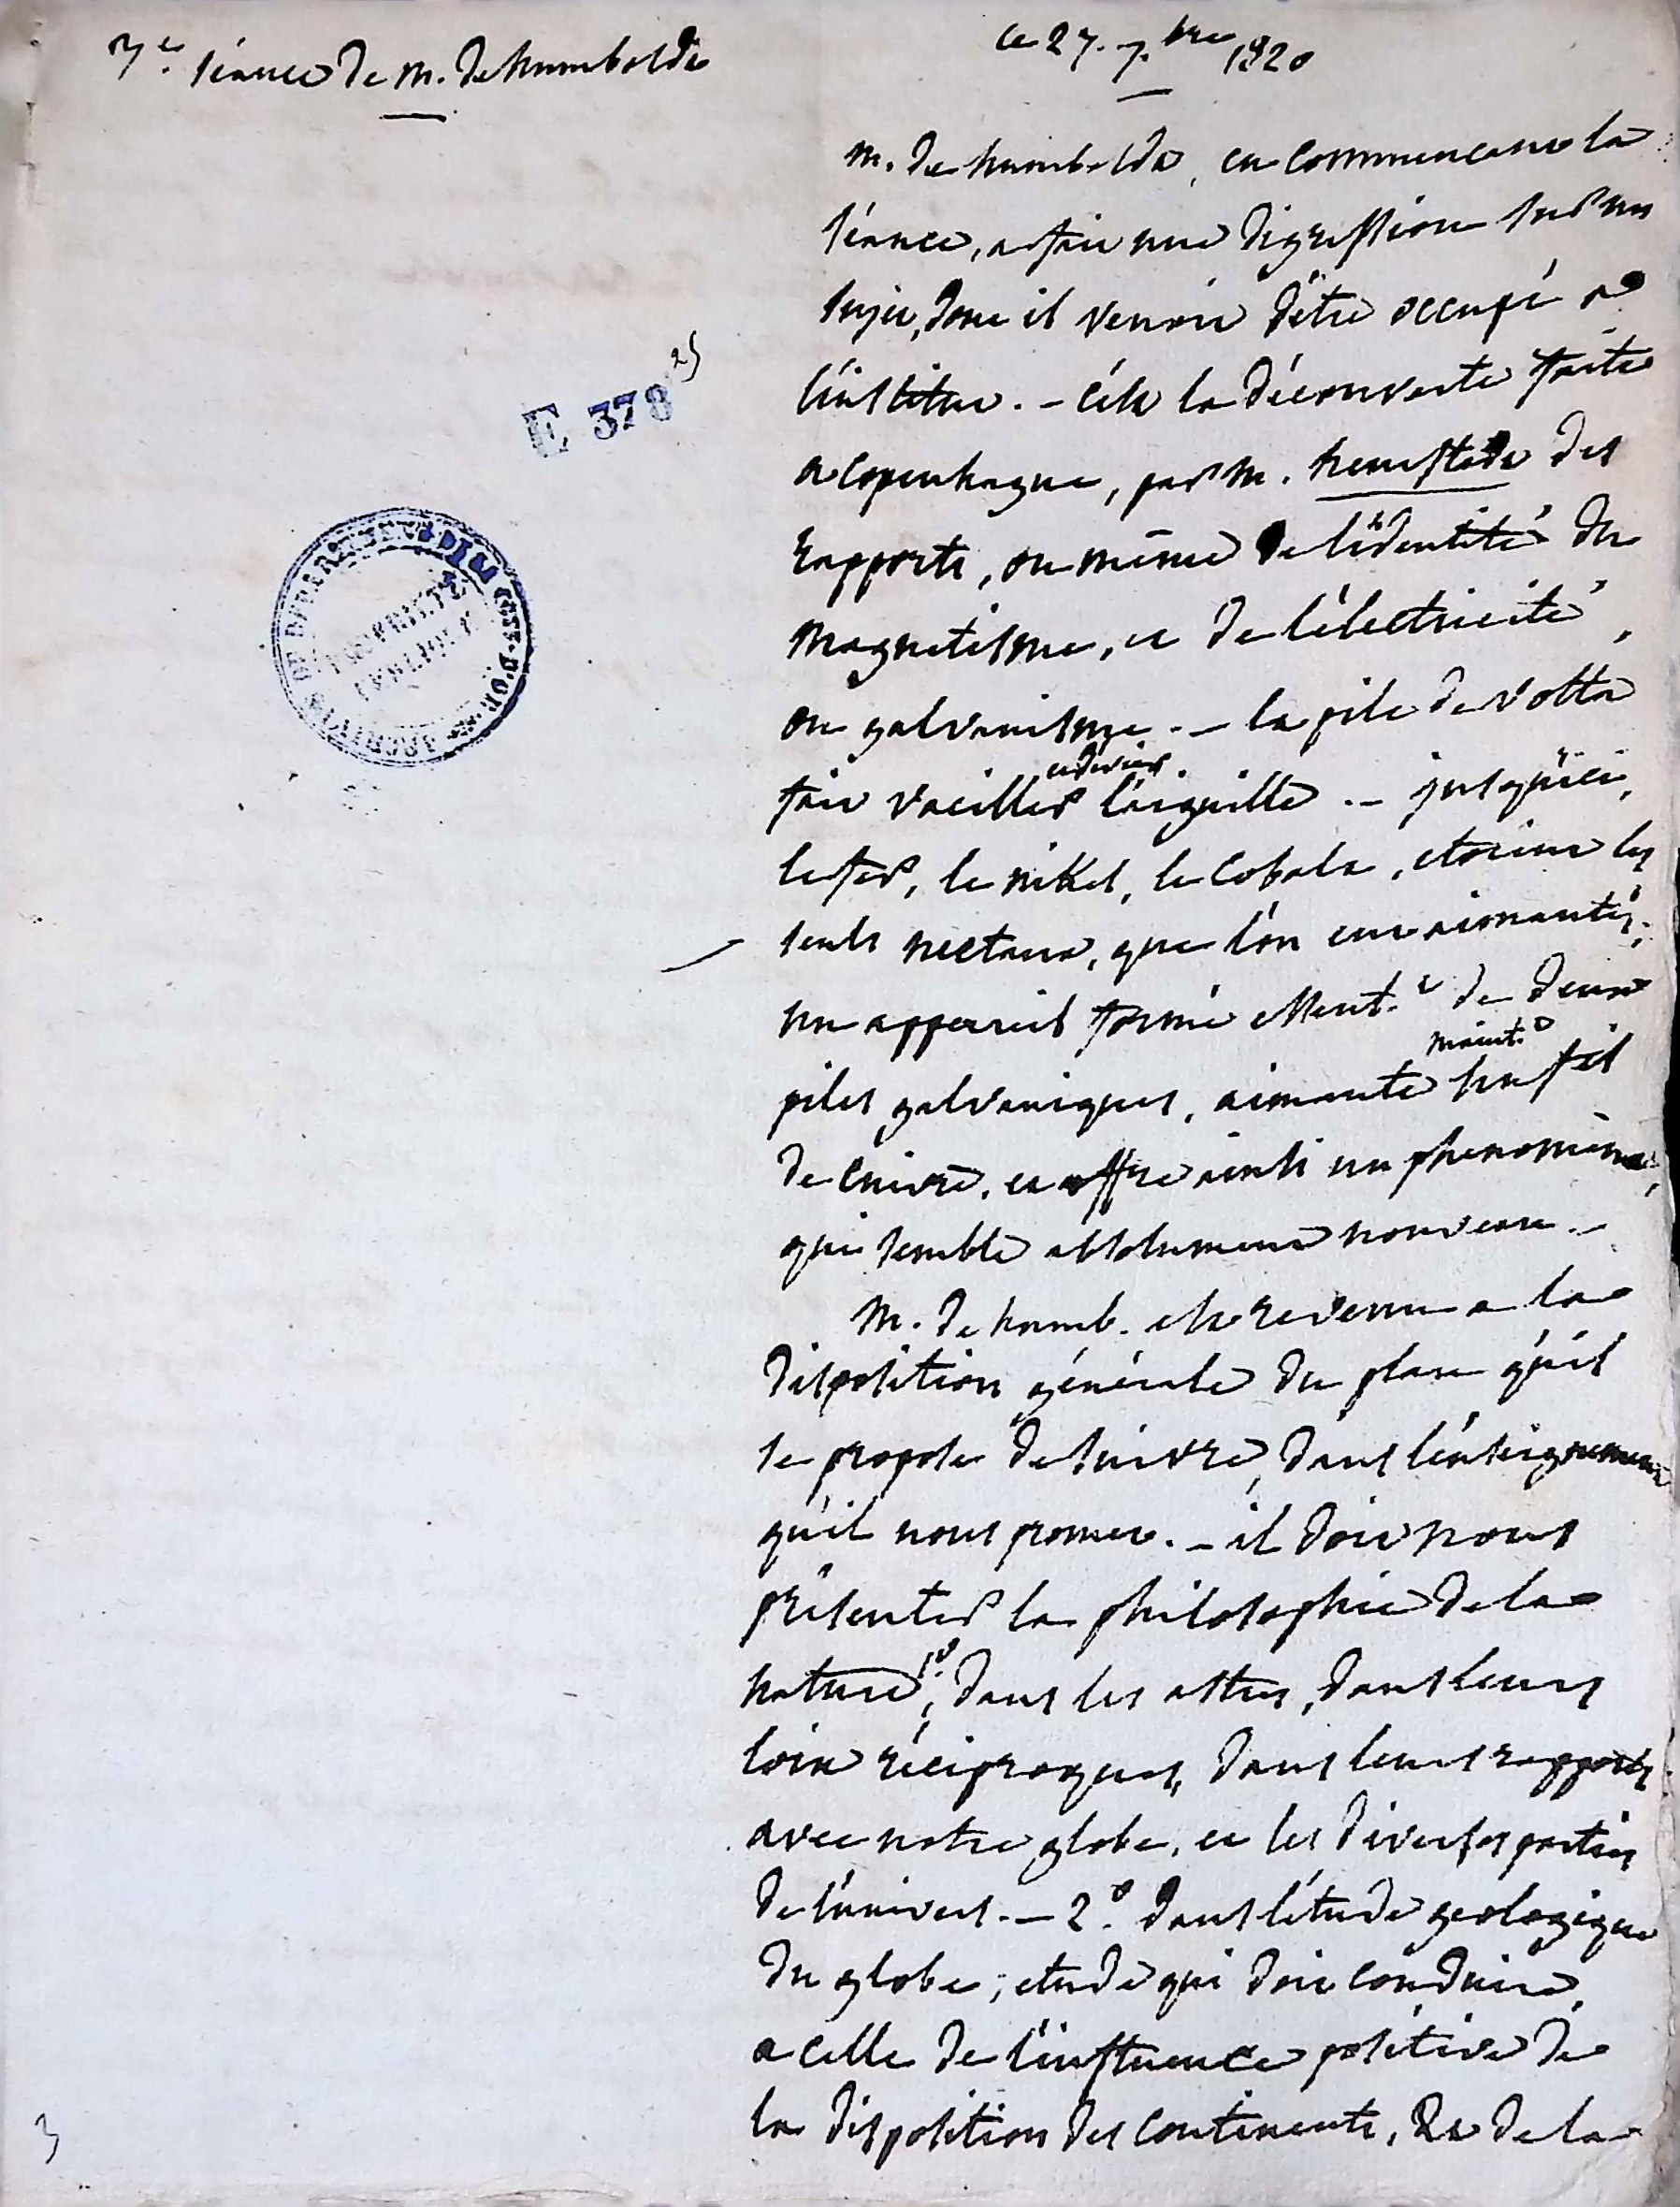 3e. séance de m. de humboldt
ce 27. 7.bre 1820
m. de humboldt, en commencant la
séance, a fait une digression sur un
sujet, dont il venoit d'être occupé a
l'institut. - c'est la découverte faite
a Copenhague, par m. des
rapports, ou même de l'identité du
magnetisme, et de l'électricité,
ou galvanisme. - la pile de volta
fait vaciller l'aiguille. - jusqu'ici,
le fer, le nikel, le Cobalt, etoient les
seuls mettaux, que l'on eut aimantés;
un appareil formé de deux
maint.
piles galvaniques, aimante un fil
de cuivre, et offre ainsi un phenomène,
qui semble absolument nouveau. -
M. de humb. est revenu a la
disposition générale du plan qu'il
se propose de suivre, dans l'enseignement
qu'il nous promet. - il doit nous
présenter la philosophie de la
nature, 1°. dans les astres, dans leurs
loix réciproques, dans leurs rapports
avec notre globe, et les diverses parties
de l'univers. - 2°. dans l'étude geologique
du globe; etude qui doit conduire,
a celle de l'influence positive de
la disposition des continents, & de la
E 378
25
ARCHIVES DU DEPARTEMENT DE LA COTE-D'OR
PROPRIÉTÉ
PUBLIQUE
3